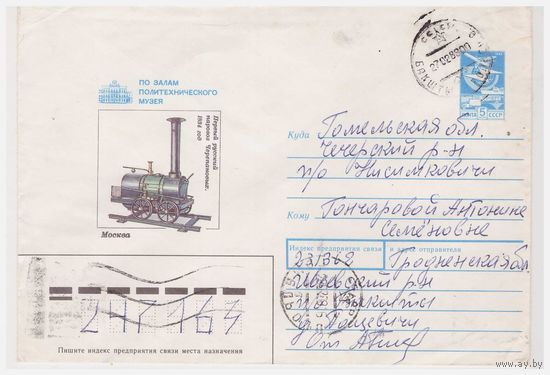 ПО ЗАЛАМ
ПОЛИТЕХНИЧЕСКОГО
МУЗЕЯ
Первый русский
паровоз Черепановых.
1834 год
Москва
ПОЧТА 5 СССР
27 02 89 00
БАКШТЫ
Куда Гомельская обл.
Чечерский р-н
п/о Нисимковичи
Кому Гончаровой Антонине
Семёновне
Индекс предприятия связи и адрес отправителя
231369 Гродненская обл
Ивьевский р-н
Бакшты
д.
От
Пишите индекс предприятия связи места назначения
www.ay.by